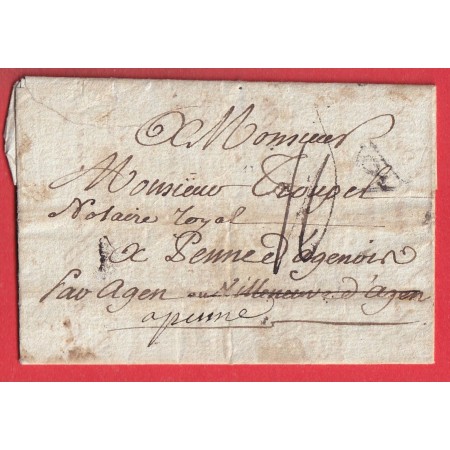 A Monsieur
Monsieur Trouget
Notaire royal
10
A Penne d'agenois
Par Agen ou Villeneuve d'Agen
a penne